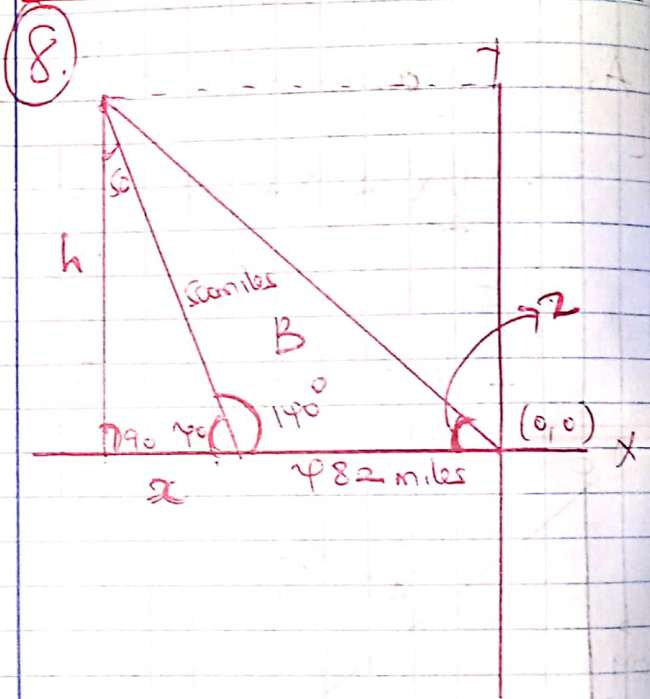 8.
50
h
500miles
B
2
90 40 140°
(0,0)
X
x
482 miles